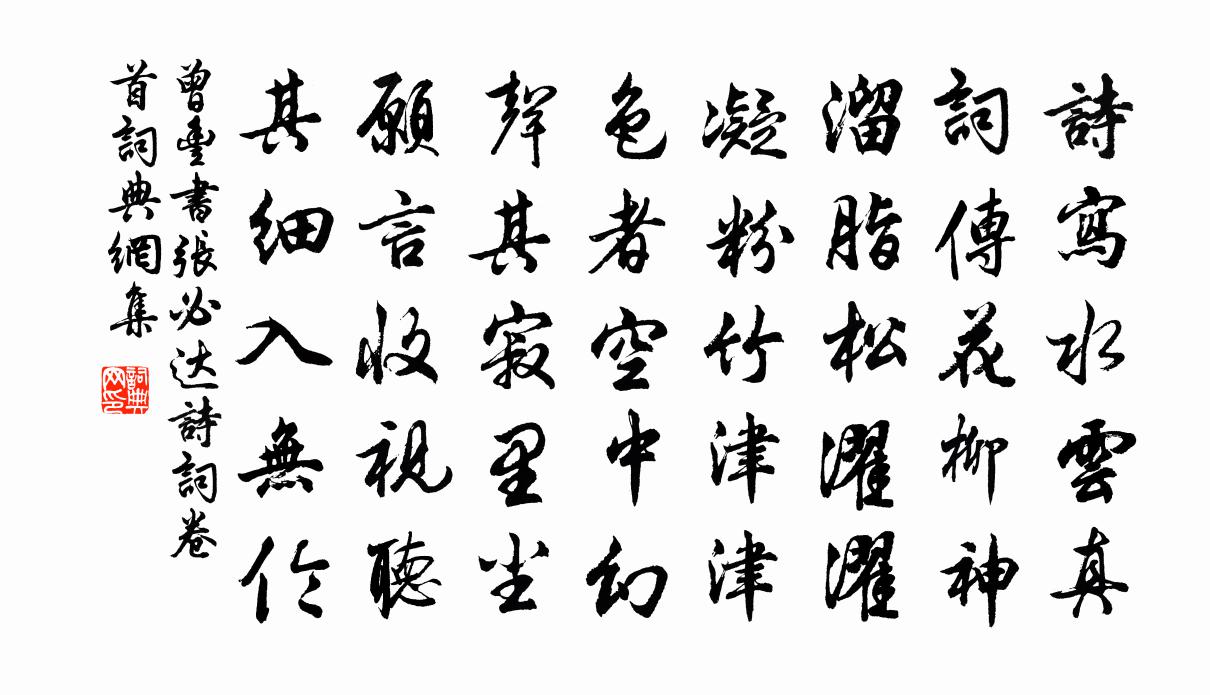 詩寫水雲真
詞傳花柳神
溜脂松濯濯
凝粉竹津津
色者空中幻
聲其寂里塵
願言收視聽
其細入無倫
曾豐書張必达詩詞卷
首詞典網集
詞典網印